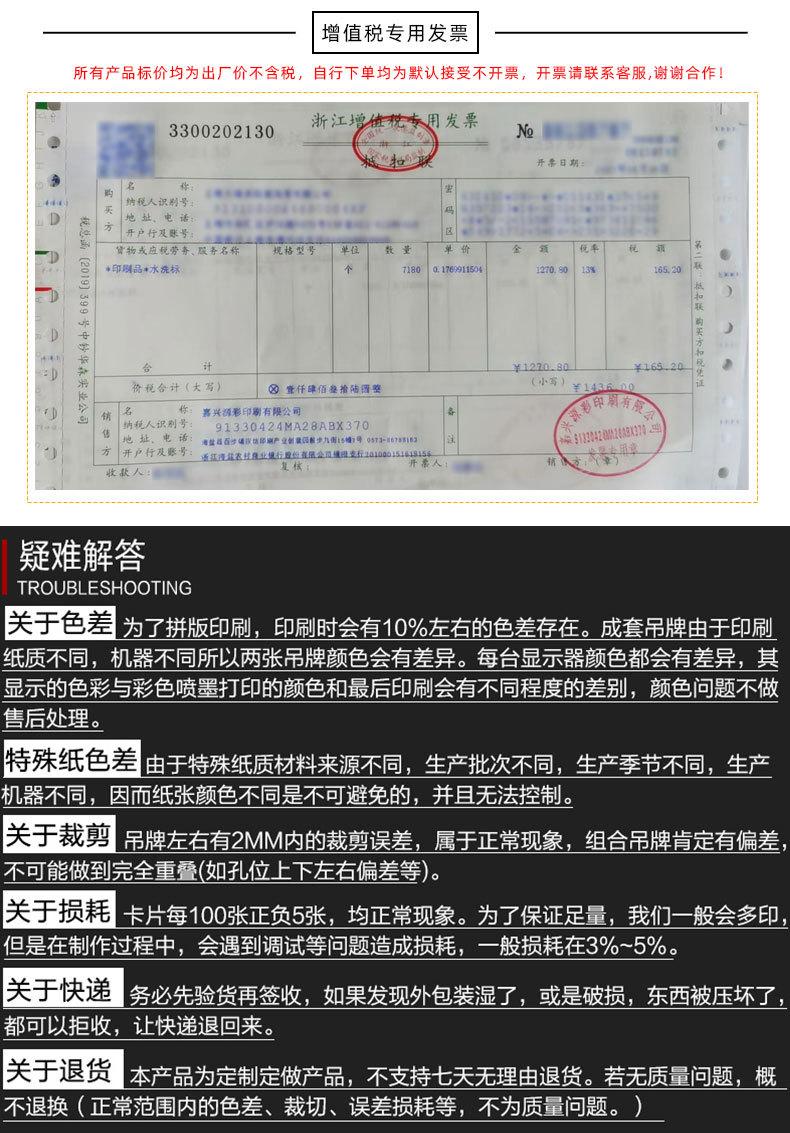 增值税专用发票
所有产品标价均为出厂价不含税，自行下单均为默认接受不开票，开票请联系客服,谢谢合作！
3300202130
浙江增值税专用发票
№
抵扣联
开票日期：
购买方
名 称：
纳税人识别号：
地址、电话：
开户行及账号：
密码区
货物或应税劳务、服务名称 规格型号 单位 数量 单价 金额 税率 税额
*印刷品*水洗标 个 7180 0.1769911504 1270.80 13% 165.20
合 计 ￥1270.80 ￥165.20
价税合计（大写） ⊗ 壹仟肆佰叁拾陆圆整 （小写） ￥1436.00
销售方
名 称： 嘉兴源彩印刷有限公司
纳税人识别号： 91330424MA28ABX370
地址、电话：
开户行及账号：
备注
收款人： 复核： 开票人： 销售方：（章）
税总函〔2019〕399号中钞华森实业公司
第二联：抵扣联 购买方扣税凭证
嘉兴源彩印刷有限公司
91330424MA28ABX370
发票专用章
疑难解答
TROUBLESHOOTING
关于色差 为了拼版印刷，印刷时会有10%左右的色差存在。成套吊牌由于印刷
纸质不同，机器不同所以两张吊牌颜色会有差异。每台显示器颜色都会有差异，其
显示的色彩与彩色喷墨打印的颜色和最后印刷会有不同程度的差别，颜色问题不做
售后处理。
特殊纸色差 由于特殊纸质材料来源不同，生产批次不同，生产季节不同，生产
机器不同，因而纸张颜色不同是不可避免的，并且无法控制。
关于裁剪 吊牌左右有2MM内的裁剪误差，属于正常现象，组合吊牌肯定有偏差，
不可能做到完全重叠(如孔位上下左右偏差等)。
关于损耗 卡片每100张正负5张，均正常现象。为了保证足量，我们一般会多印，
但是在制作过程中，会遇到调试等问题造成损耗，一般损耗在3%~5%。
关于快递 务必先验货再签收，如果发现外包装湿了，或是破损，东西被压坏了，
都可以拒收，让快递退回来。
关于退货 本产品为定制定做产品，不支持七天无理由退货。若无质量问题，概
不退换（正常范围内的色差、裁切、误差损耗等，不为质量问题。）